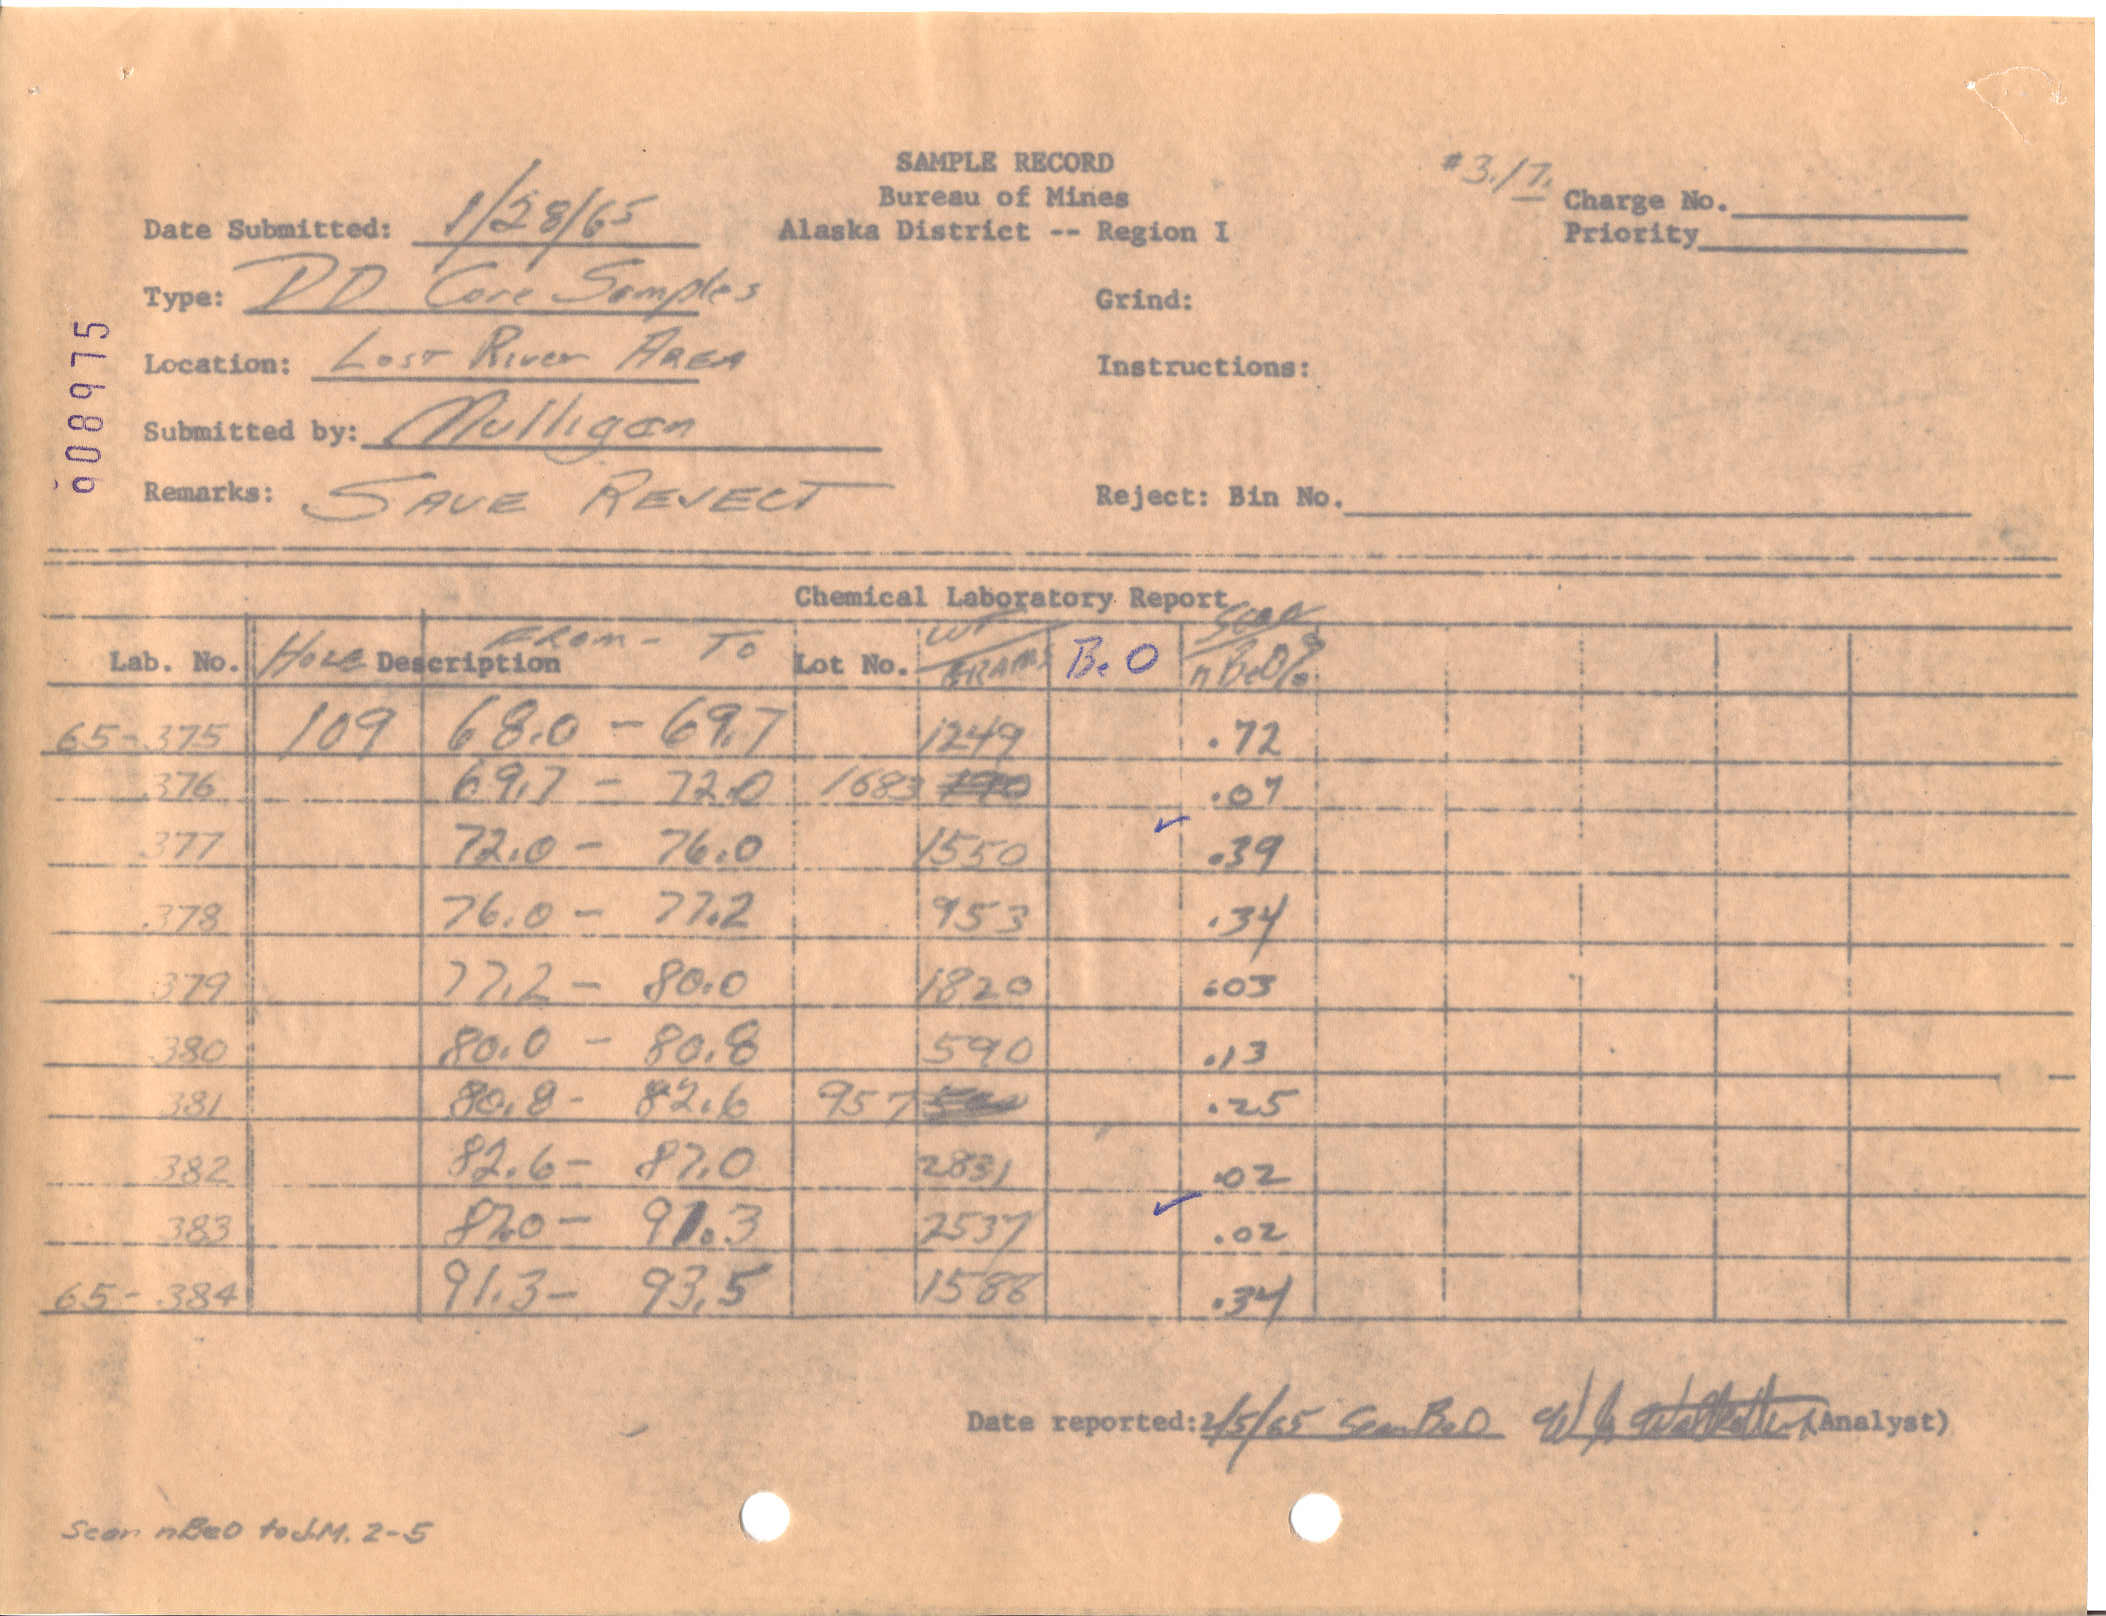 SAMPLE RECORD
Bureau of Mines
Alaska District -- Region I
#3.17.
Charge No.
Priority
Date Submitted: 1/28/65
Type: DD Core Samples
Grind:
Location: Lost River AREA
Instructions:
Submitted by: Mulligan
Remarks: SAVE REJECT
Reject: Bin No.
908975
Chemical Laboratory Report
Lab. No. HOLE Description FROM - TO Lot No. WT GRAMS BeO Scan nBeO%
65-375 109 68.0 - 69.7 1249 .72
376 69.7 - 72.0 1683 .07
377 72.0 - 76.0 1550 .39
378 76.0 - 77.2 953 .34
379 77.2 - 80.0 1820 .03
380 80.0 - 80.8 590 .13
381 80.8 - 82.6 957 .25
382 82.6 - 87.0 2831 .02
383 87.0 - 91.3 2537 .02
65-384 91.3 - 93.5 1588 .34
Date reported: 2/5/65 Scan BeO (Analyst)
Scan nBeO to J.M. 2-5